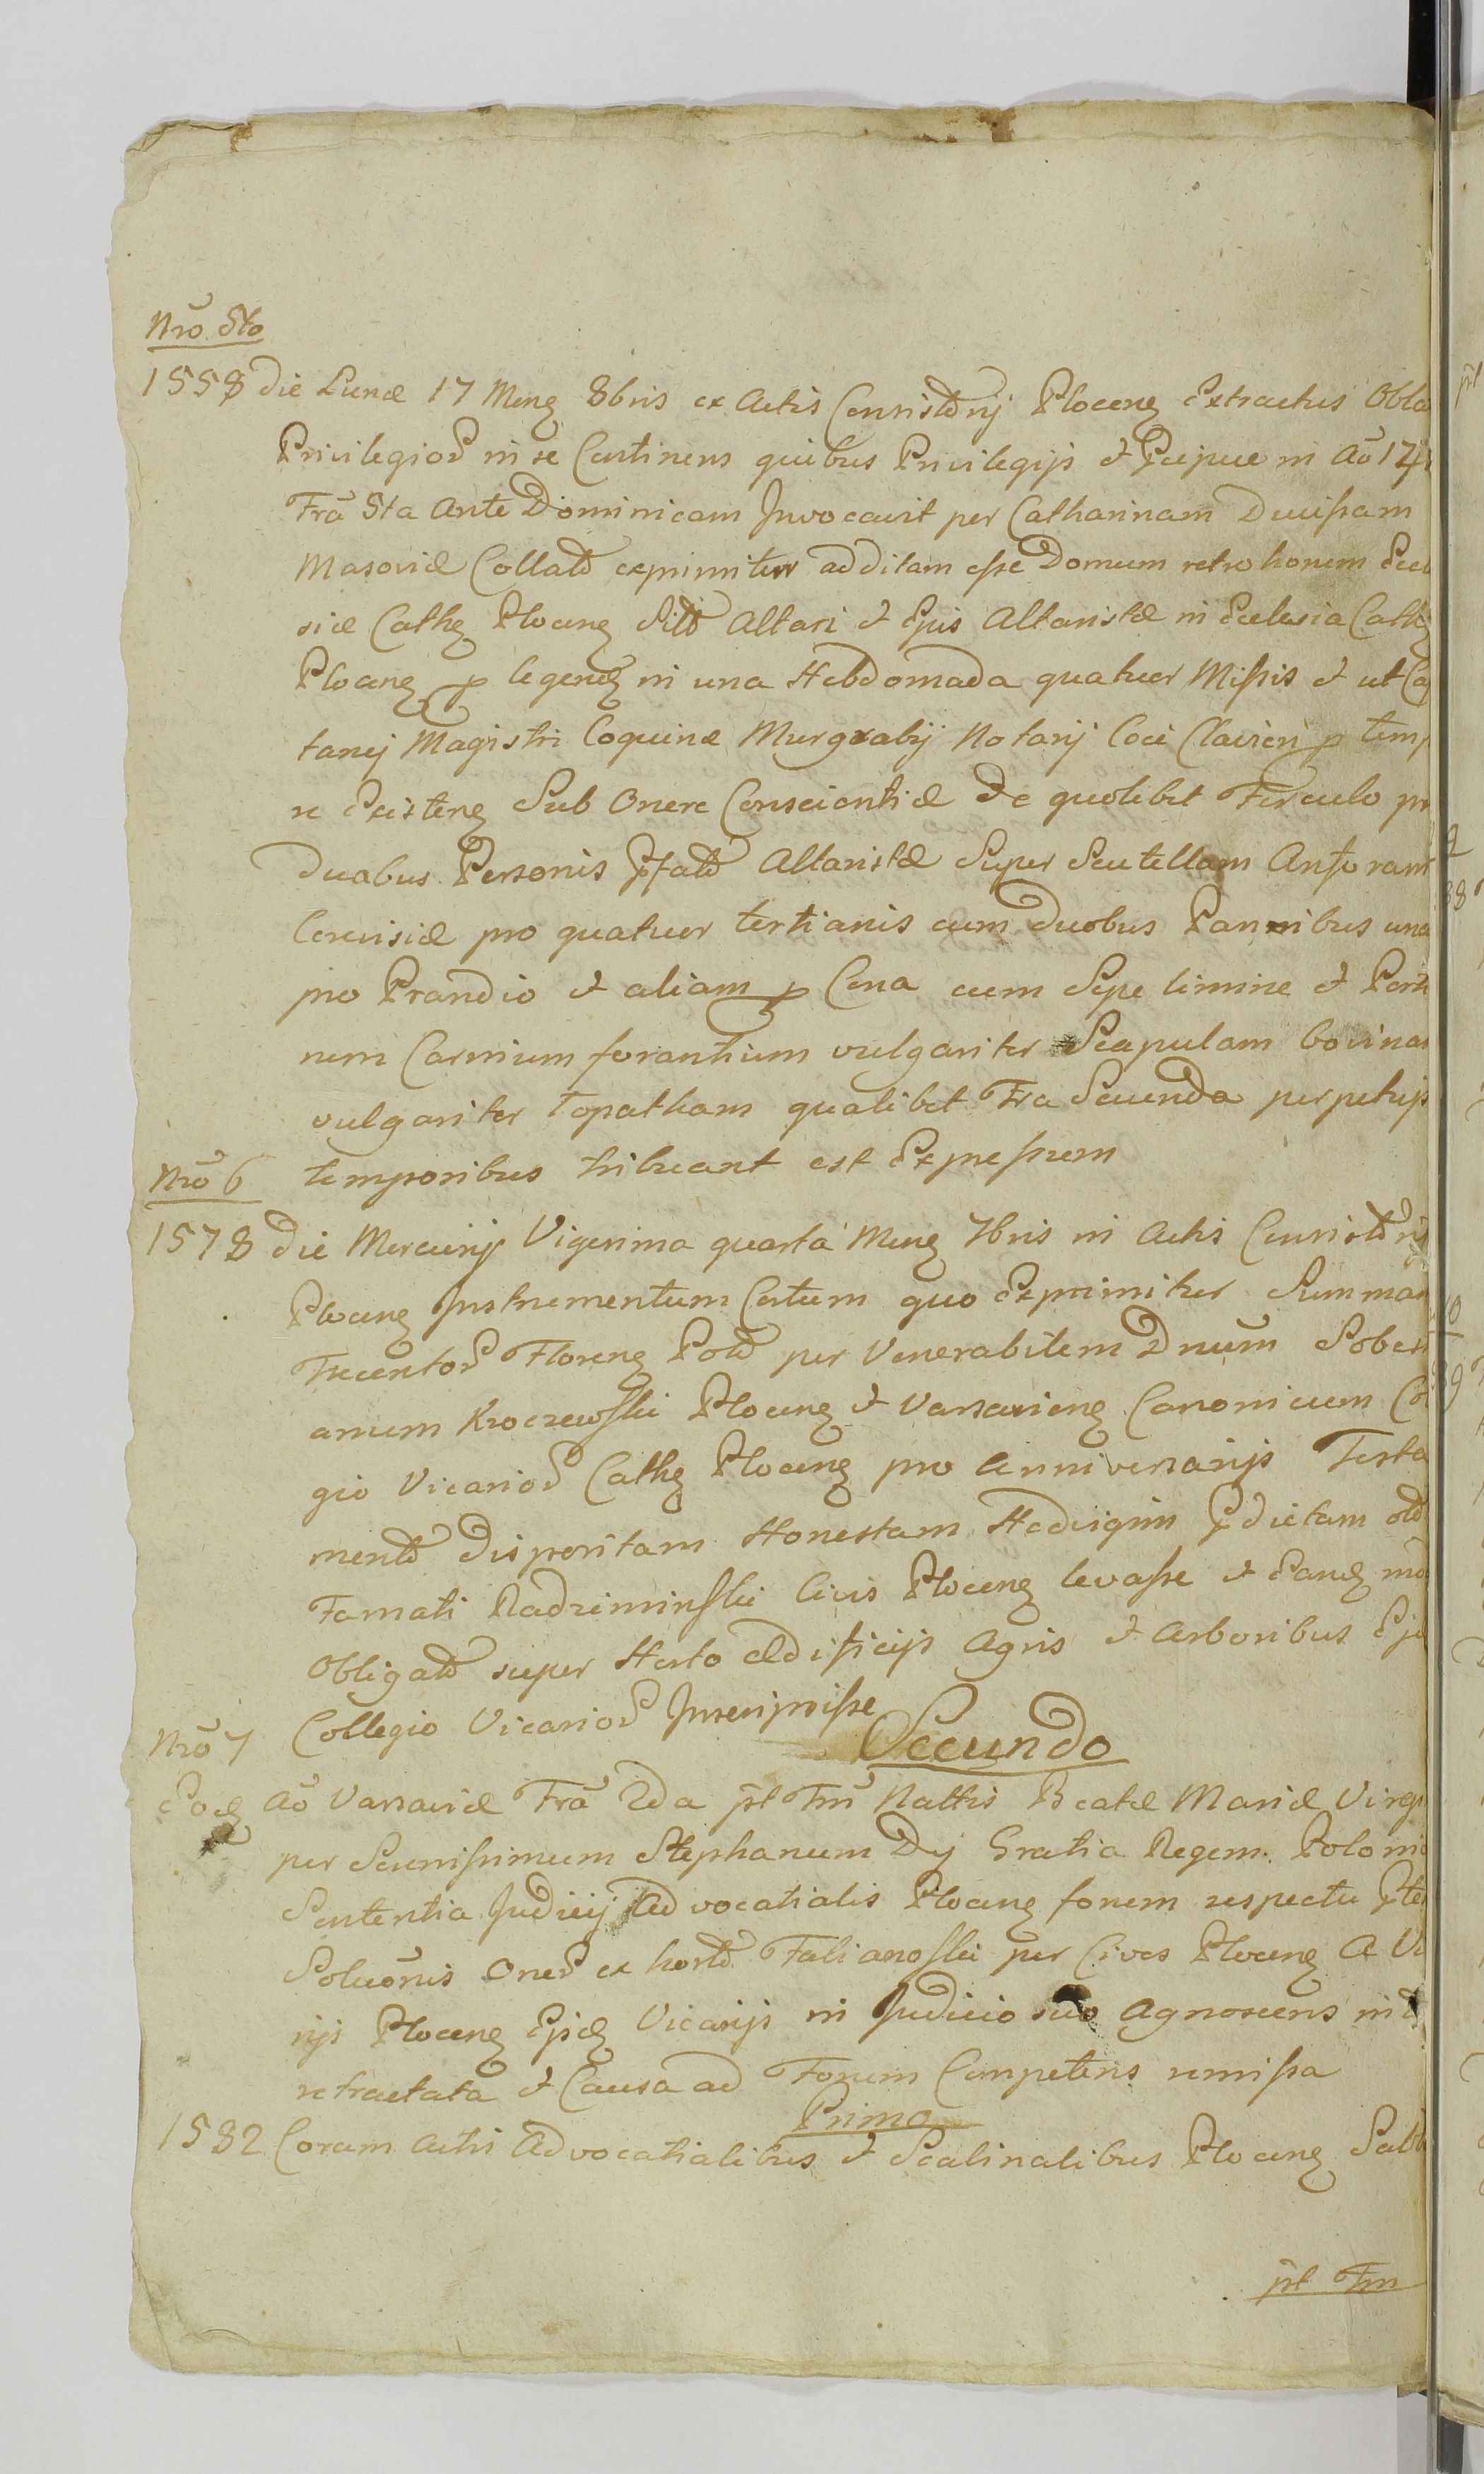 Nrō 5to
1558 die Lunæ 17 Mens 8bris ex Actis Consistorij Plocens Extractus Obla
Privilegior in se Continens quibus Privilegijs et Præcipue in Aō 14
Frā 5ta Ante Dominicam Invocavit per Catharinam Ducissam
Masoviæ Collato exprimitur additam esse Domum retro horreum Eccl
siæ Cathe Plocens Sito Altari et Ejus Altaristæ in Ecclesia Cathe
Plocens p legens in una Hebdomada quatuor Missis et ut Ca
tanej Magistri Coquinæ Murgrabij Notarij Coci Clavicu p temp
re Existens Sub Onere Conscientiæ De quolibet Ferculo pr
duabus Personis Pfato Altaristæ Super Scutellam Amforam
Cerevisiæ pro quatuor tertianis cum duobus Pannibus una
pro Prandio et aliam p Cena cum Sepe limine et Porti
nem Carnium forantium vulgariter Scapulam bovinam
vulgariter Lopatham qualibet Fra Secunda perpetujs
temporibus tribuant est Expressum
Nrō 6
1578 die Mercurij Vigesima quarta Mens 7bris in Actis Consistori
Plocens Instrumentum Certum quo Exprimitur Summam
Trecentor Florens Polo per Venerabilem Dnūm Sobesti
anum Kroczewski Plocens et Varsaviens Canonicum Co
gio Vicarior Cathe Plocens pro Anniversarijs Testa
mento Dispositam Honestam Hedvigim Pdictam olo
Famati Radziminski Civis Plocens levasse et Eand mo
Obligato super Horto ædificijs Agris et Arboribus Eju
Collegio Vicarior Inscripsisse
Nrō 7
Secundo
Eod Aō Varsaviæ Frā 2da pt Fm̄ Nattis Beatæ Mariæ Virgi
per Serenissimum Stephanum Dej Gratia Regem Poloni
Sententia Judicij Advocatialis Plocens forum respectu Pte
Soluōnis Oner ex horto Falianoski per Cives Plocens A Vi
rijs Plocens Ejsd Vicarijs in Judicio suo Agnoscens in
retractata et Causa ad Forum Competens remissa
Primo
1582 Coram Actis Advocatialibus et Scabinalibus Plocens Sabb
pt Fm